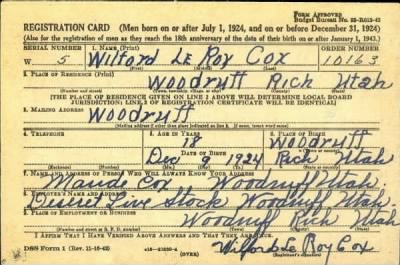 FORM APPROVED
Budget Bureau No. 33-R012-42
REGISTRATION CARD (Men born on or after July 1, 1924, and on or before December 31, 1924)
(Also for the registration of men as they reach the 18th anniversary of the date of their birth on or after January 1, 1943.)
SERIAL NUMBER 1. NAME (Print) ORDER NUMBER
W 5 Wilford Le Roy Cox 10163
2. PLACE OF RESIDENCE (Print)
Woodruff Rich Utah
[THE PLACE OF RESIDENCE GIVEN ON LINE 2 ABOVE WILL DETERMINE LOCAL BOARD
JURISDICTION; LINE 2 OF REGISTRATION CERTIFICATE WILL BE IDENTICAL]
3. MAILING ADDRESS
Woodruff
[Mailing address if other than place indicated on line 2. If same, insert word same]
4. TELEPHONE 5. AGE IN YEARS 6. PLACE OF BIRTH
18 Woodruff
DATE OF BIRTH
Dec 9 1924 Rich Utah
7. NAME AND ADDRESS OF PERSON WHO WILL ALWAYS KNOW YOUR ADDRESS
Cox Woodruff Utah.
8. EMPLOYER'S NAME AND ADDRESS
Deseret Live Stock Woodruff Utah.
9. PLACE OF EMPLOYMENT OR BUSINESS
Woodruff Rich Utah
I AFFIRM THAT I HAVE VERIFIED ABOVE ANSWERS AND THAT THEY ARE TRUE.
DSS Form 1 (Rev. 11-16-42) (OVER) Wilford Le Roy Cox